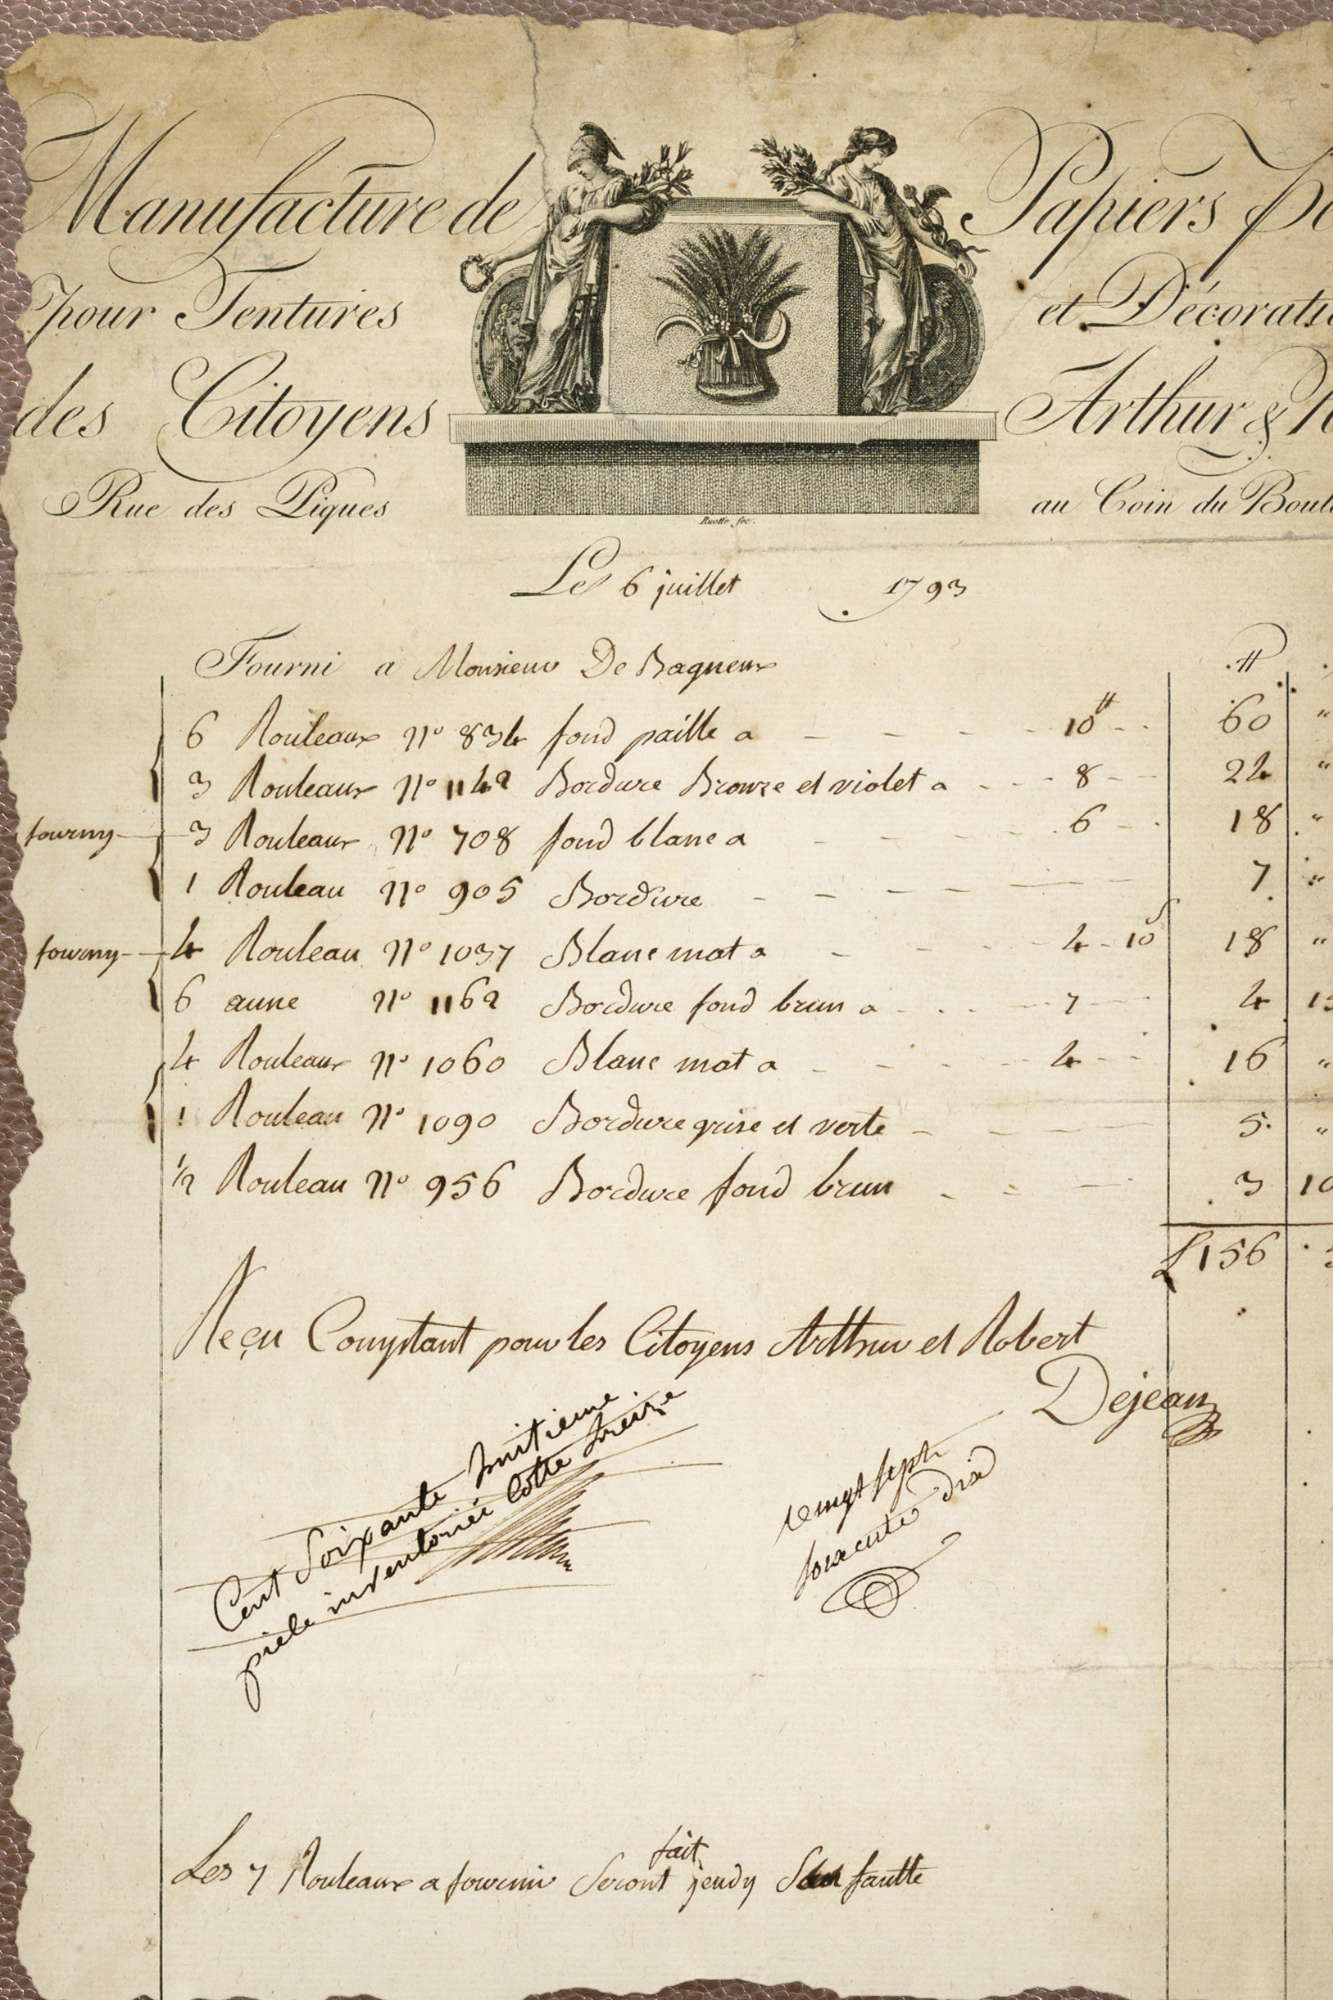 Manufacture de Papiers
pour Tentures et Décorati
des Citoyens Arthur &
Rue des Piques au Coin du Boul
Ruotte fec.
Le 6 juillet 1793
Fourni a Monsieur De Bagneux ₶
6 Rouleaux N° 834 fond paille a 10₶ 60 "
3 Rouleaux N° 1142 Bordure Bronze et violet a 8 24 "
fourny 3 Rouleaux N° 708 fond blanc a 6 18 "
1 Rouleau N° 905 Bordure 7 "
fourny 4 Rouleau N° 1037 Blanc mat a 4 10s 18 "
6 aune N° 1162 Bordure fond brun a 7 4 1
4 Rouleaux N° 1060 Blanc mat a 4 16 "
1 Rouleau N° 1090 Bordure grise et verte 5 "
1/2 Rouleau N° 956 Bordure fond brun 3 10
£ 156
Reçu Comptant pour les Citoyens Arthur et Robert
Dejean
Cent Soixante huitieme
piece inventoriée Cotte treize
vingt sept
soixante dix
Les 7 Rouleaux a fournir Seront fait jeudy San fautte